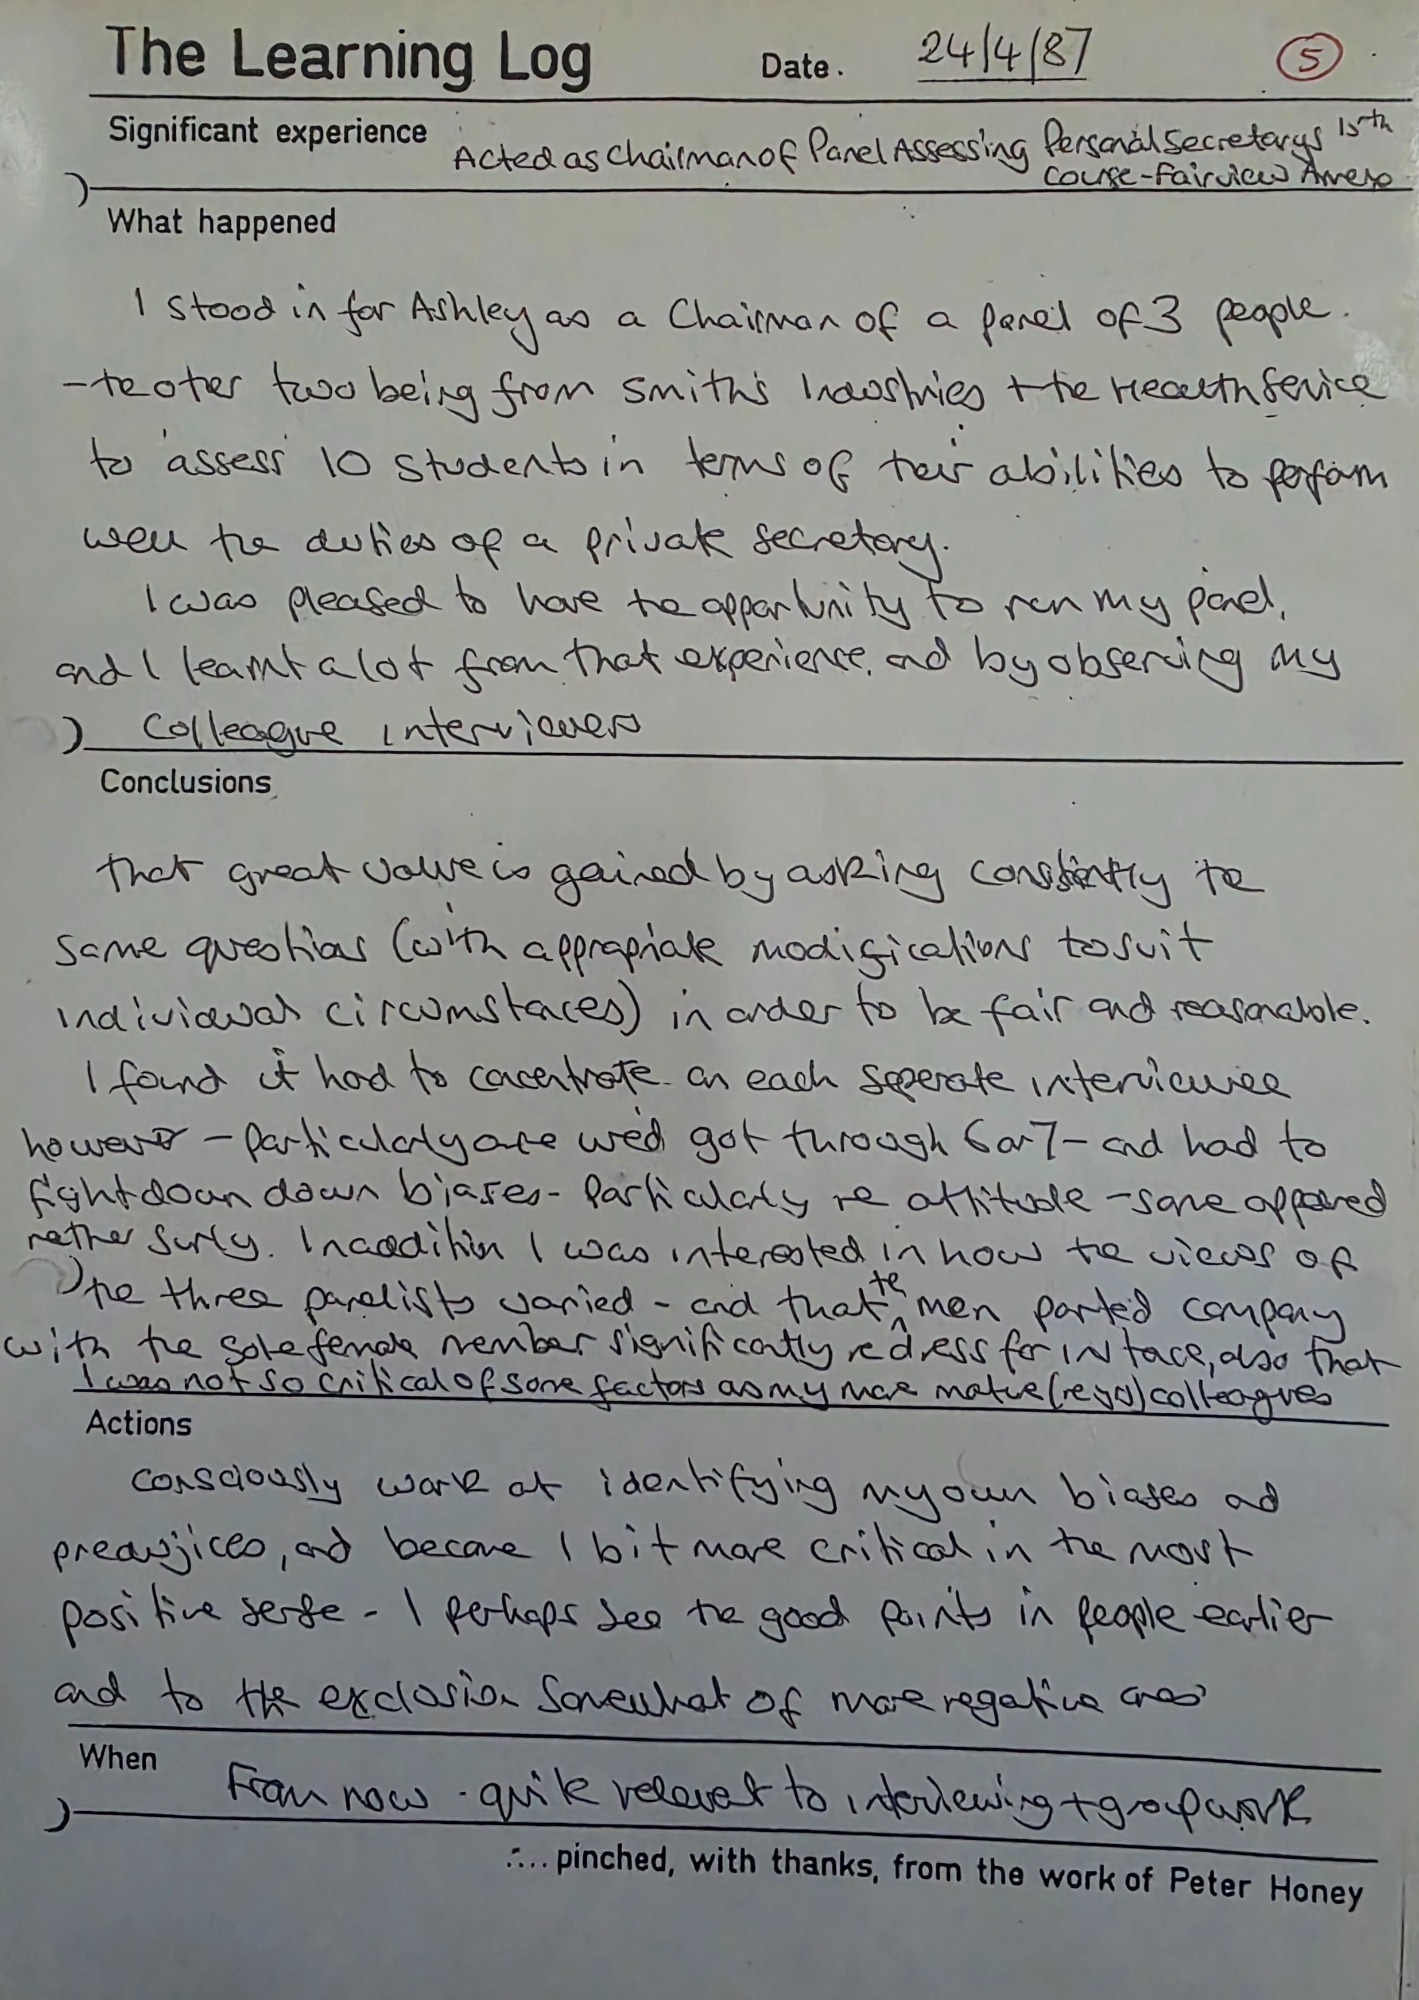 The Learning Log Date. 24/4/87 5
Significant experience Acted as Chairman of Panel Assessing Personal Secretarys 15th
Course - Fairview
What happened
I stood in for Ashley as a Chairman of a panel of 3 people.
- the other two being from Smith's Industries + the Health Service
to assess 10 students in terms of their abilities to perform
well the duties of a private secretary.
I was pleased to have the opportunity to run my panel,
and I learnt a lot from that experience, and by observing my
colleague interviewers
Conclusions
that great value is gained by asking consistently the
same questions (with appropriate modifications to suit
individual circumstances) in order to be fair and reasonable.
I found it hard to concentrate on each seperate interviewee
however - particularly once we'd got through 6 or 7 - and had to
fight down down biases - particularly re attitude - some appeared
rather surly. In addition I was interested in how the views of
the three panelists varied - and that the men parted company
with the sole female member significantly re dress for, also that
I was not so critical of some factors as my more mature colleagues
Actions
consciously work at identifying my own biases and
predujices, and become 1 bit more critical in the most
positive sense - I perhaps see the good points in people earlier
and to the exclusion somewhat of more negative ones
When From now - quite relevant to interviewing + groupwork
∴... pinched, with thanks, from the work of Peter Honey